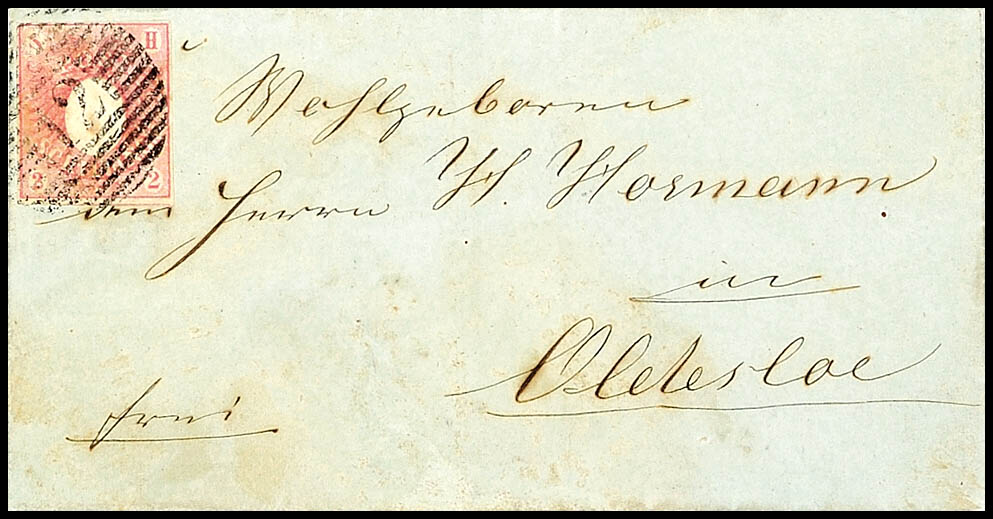 H
2
Wohlgeboren
dem Herrn H. Hormann
in
Oldesloe
frei